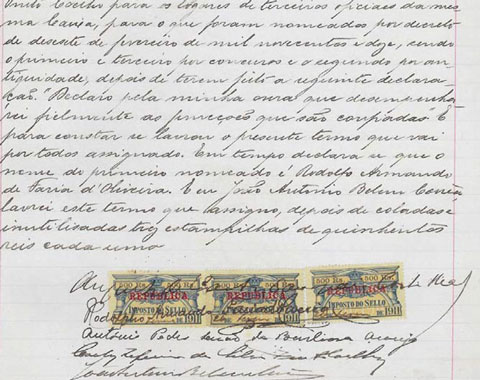 Coelho para os logares de terceiros oficiaes da mes
ma Caixa, para o que foram nomeados por decreto
de desesete de fevereiro de mil novecentos e doze, sendo
o primeiro e terceiro por concurso e o segundo por an
tiguidade, depois de terem feito a seguinte declara
ção. "Declaro pela minha honra que desempenha
rei fielmente as funcções que são confiadas" E
para constar se lavrou o presente termo que vai
por todos assignado. Em tempo declara se que o
nome do primeiro nomeado é Rodolfo Armando
de Faria d'Oliveira. E eu João Antonio Belem
lavrei este termo que assigno, depois de coladas e
inutilisadas trez estampilhas de quinhentos
reis cada uma
500 Rs 500 Rs 500 Rs 500 Rs
REPUBLICA REPUBLICA REPUBLICA
IMPOSTO DO SELLO IMPOSTO DO SELLO IMPOSTO DO SELLO
DE 1911 DE 1911 DE 1911
Rodolpho Armando
Antonio